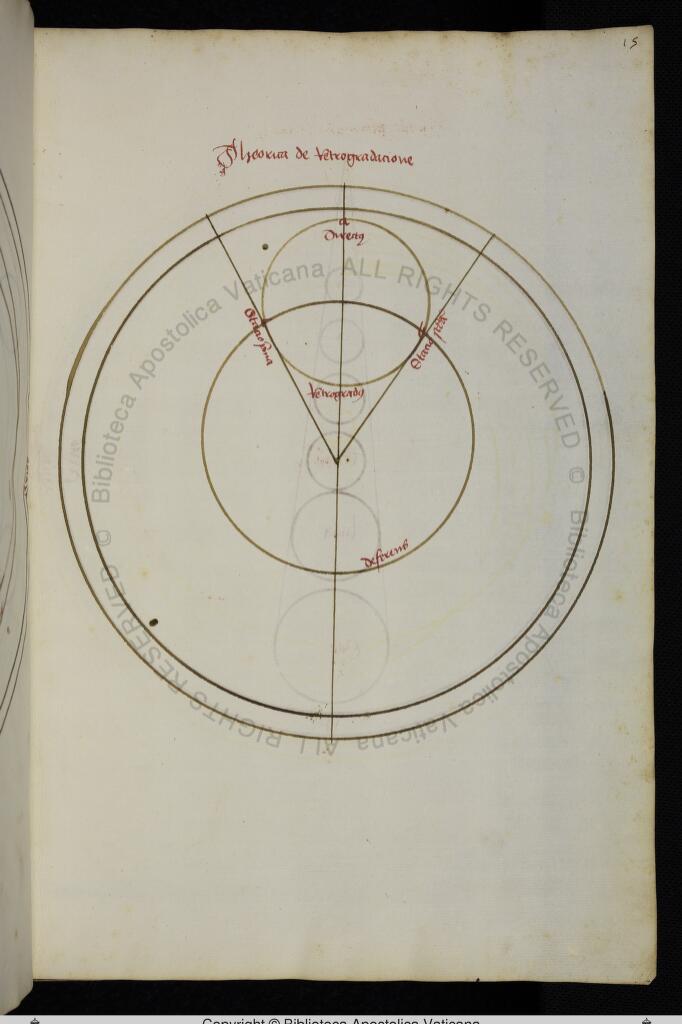 15
Theorica de retrogradacione
a
Directus
Retrogradus
deferens
Biblioteca Apostolica Vaticana ALL RIGHTS RESERVED ©
Biblioteca Apostolica Vaticana ALL RIGHTS RESERVED ©
Copyright © Biblioteca Apostolica Vaticana